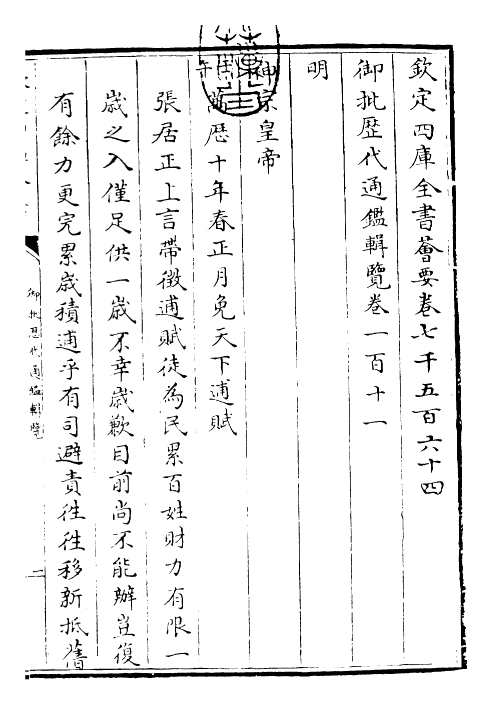 欽定四庫全書薈要卷七千五百六十四
御批歷代通鑑輯覽卷一百十一
明
神宗皇帝
午
萬歷十年春正月免天下逋賦
張居正上言帶徵逋賦徒為民累百姓財力有限一
歲之入僅足供一歲不幸歲歉目前尚不能辦豈復
有餘力更完累歲積逋乎有司避責徃徃移新抵舊
御批歷代通鑑輯覽